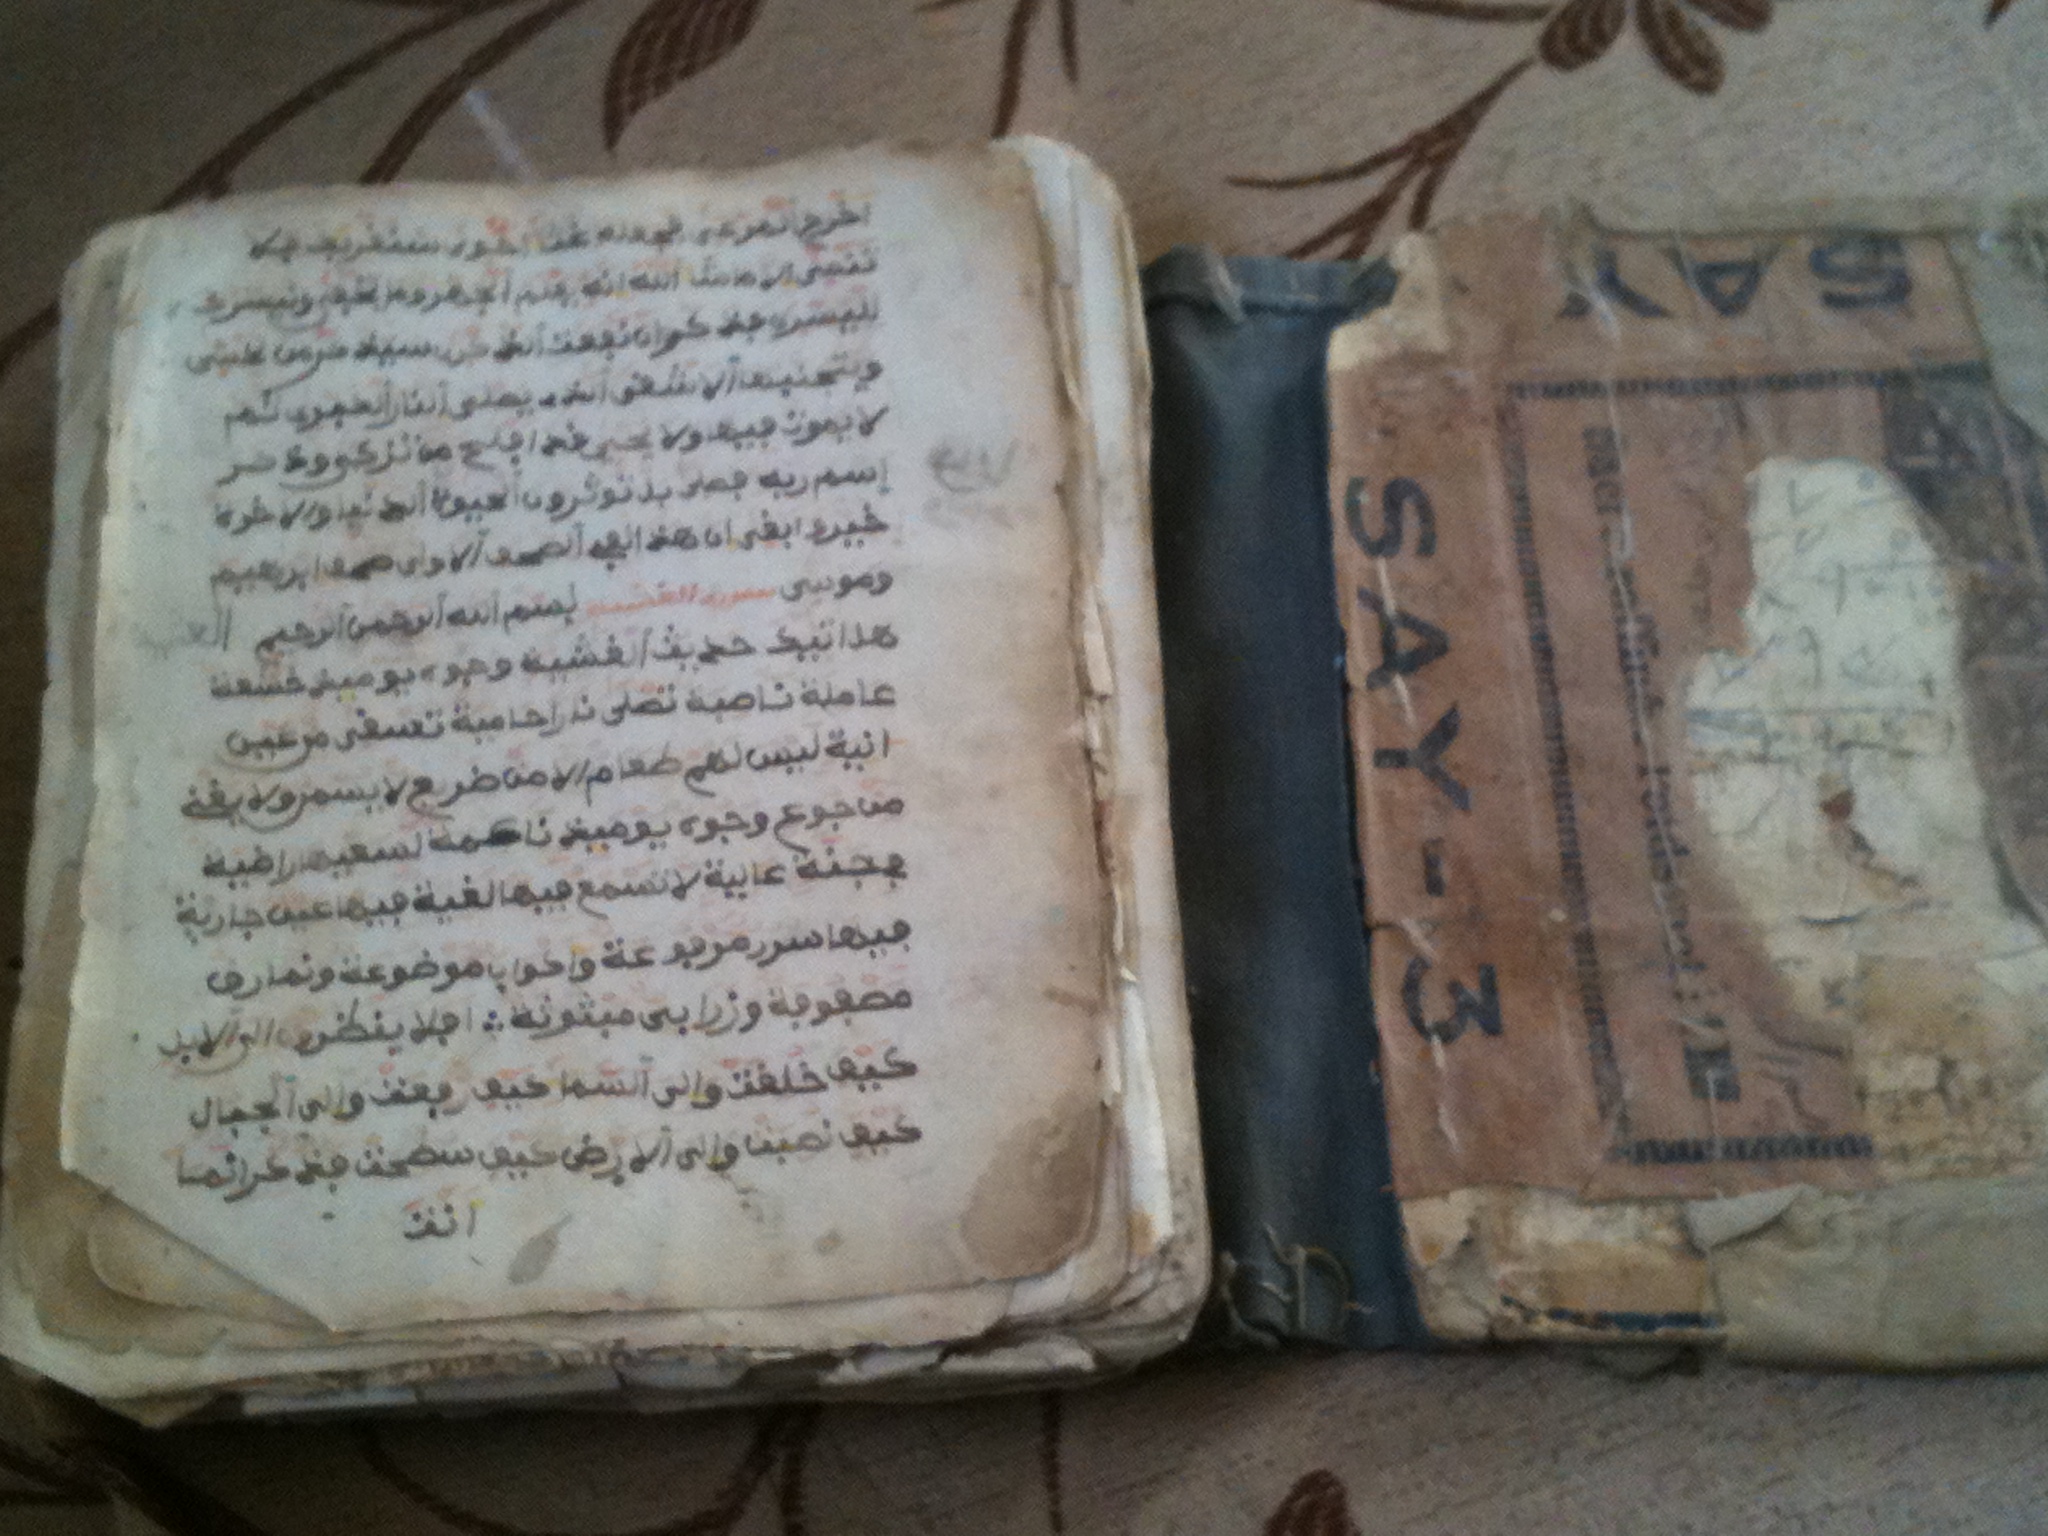 اخرج المرعى فجعله غثا احوى سنقريك فلا
تنسى الا ما شا الله انه يعلم الجهر وما يخفى ونيسرك
لليسرى فذكر ان نفعت الذكرى سيذكر من يخشى
ويتجنبها الاشقى الذى يصلى النار الكبرى ثم
لا يموت فيها ولا يحيى قد افلح من تزكى وذكر
اسم ربه فصلى بل توثرون الحيوة الدنيا والاخرة
خير وابقى ان هذا لفى الصحف الاولى صحف ابرهيم
وموسى سورة الغشية بسم الله الرحمن الرحيم
هل اتيك حديث الغشية وجوه يوميذ خشعة
عاملة ناصبة تصلى نارا حامية تسقى من عين
انية ليس لهم طعام الا من ضريع لا يسمن ولا يغنى
من جوع وجوه يوميذ ناعمة لسعيها راضية
فى جنة عالية لا تسمع فيها لغية فيها عين جارية
فيها سرر مرفوعة واكواب موضوعة ونمارق
مصفوفة وزرابى مبثوثة افلا ينظرون الى الابل
كيف خلقت والى السما كيف رفعت والى الجبال
كيف نصبت والى الارض كيف سطحت فذكر انما
انت
SAY
SAY-3